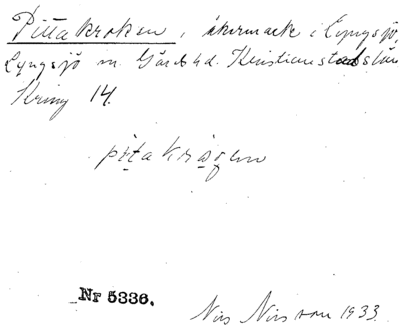 Pittakroken, åkermark i Lyngsjö,
Lyngsjö sn. Gärds hd. Kristianstads län
Kring 14.
pitakrågen
Nr 5336.
Nils Nilsson 1933.